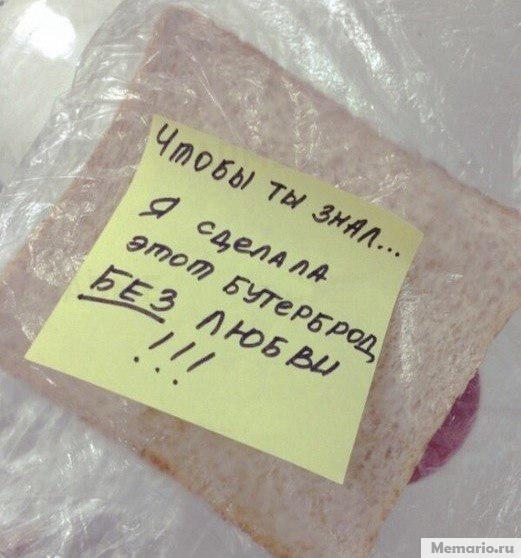 Чтобы ты знал...
Я сделала
этот бутерброд
БЕЗ любви
!!!
Memario.ru